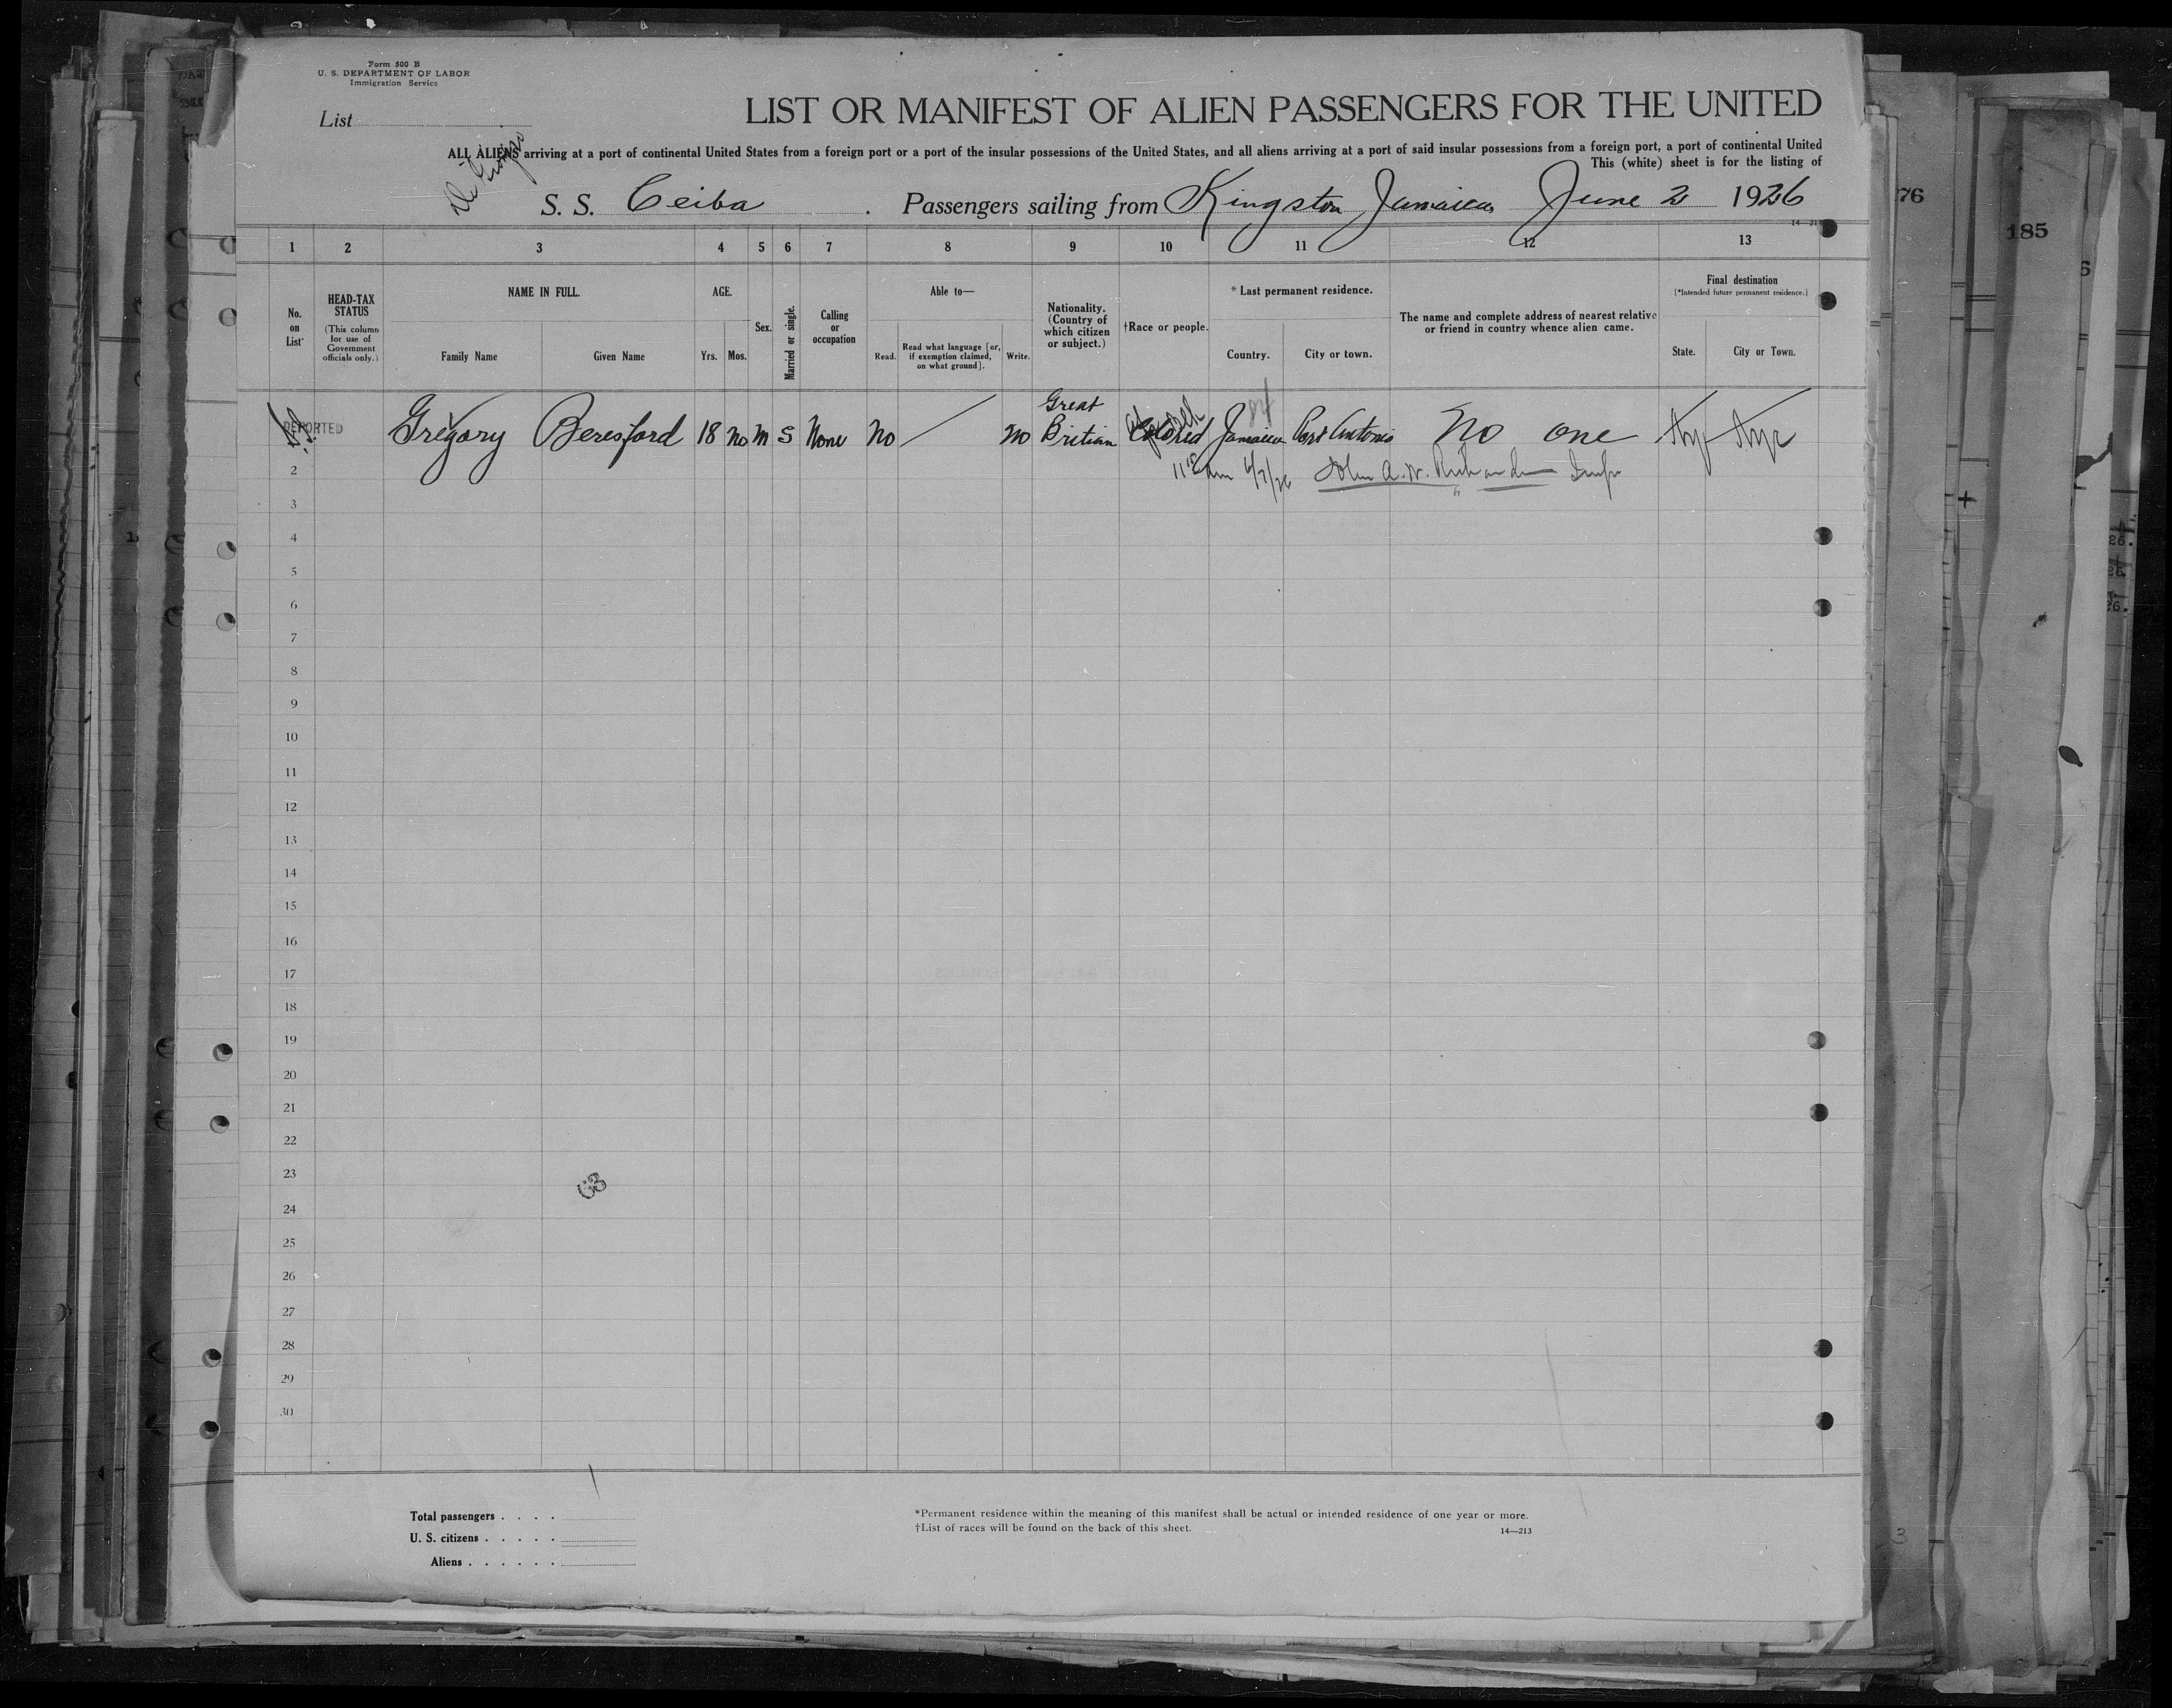 Form 500 B
U. S. DEPARTMENT OF LABOR
Immigration Service
List
LIST OR MANIFEST OF ALIEN PASSENGERS FOR THE UNITED
ALL ALIENS arriving at a port of continental United States from a foreign port or a port of the insular possessions of the United States, and all aliens arriving at a port of said insular possessions from a foreign port, a port of continental United
This (white) sheet is for the listing of
S. S. Ceiba . Passengers sailing from Kingston Jamaica June 2 1926
1 2 3 4 5 6 7 8 9 10 11 12 13
No. on List
HEAD-TAX STATUS
(This column for use of Government officials only.)
NAME IN FULL.
Family Name
Given Name
AGE.
Yrs.
Mos.
Sex.
Married or single.
Calling or occupation
Able to—
Read.
Read what language [or, if exemption claimed, on what ground].
Write.
Nationality. (Country of which citizen or subject.)
†Race or people.
* Last permanent residence.
Country.
City or town.
The name and complete address of nearest relative or friend in country whence alien came.
Final destination
(*Intended future permanent residence.)
State.
City or Town.
Gregory Beresford 18 no m S None no no Great Britian Colored Jamaica Port Antonio No one
2
3
4
5
6
7
8
9
10
11
12
13
14
15
16
17
18
19
20
21
22
23
24
25
26
27
28
29
30
63
Total passengers . . . .
U. S. citizens . . . . .
Aliens . . . . . .
*Permanent residence within the meaning of this manifest shall be actual or intended residence of one year or more.
†List of races will be found on the back of this sheet.
14—213
76
185